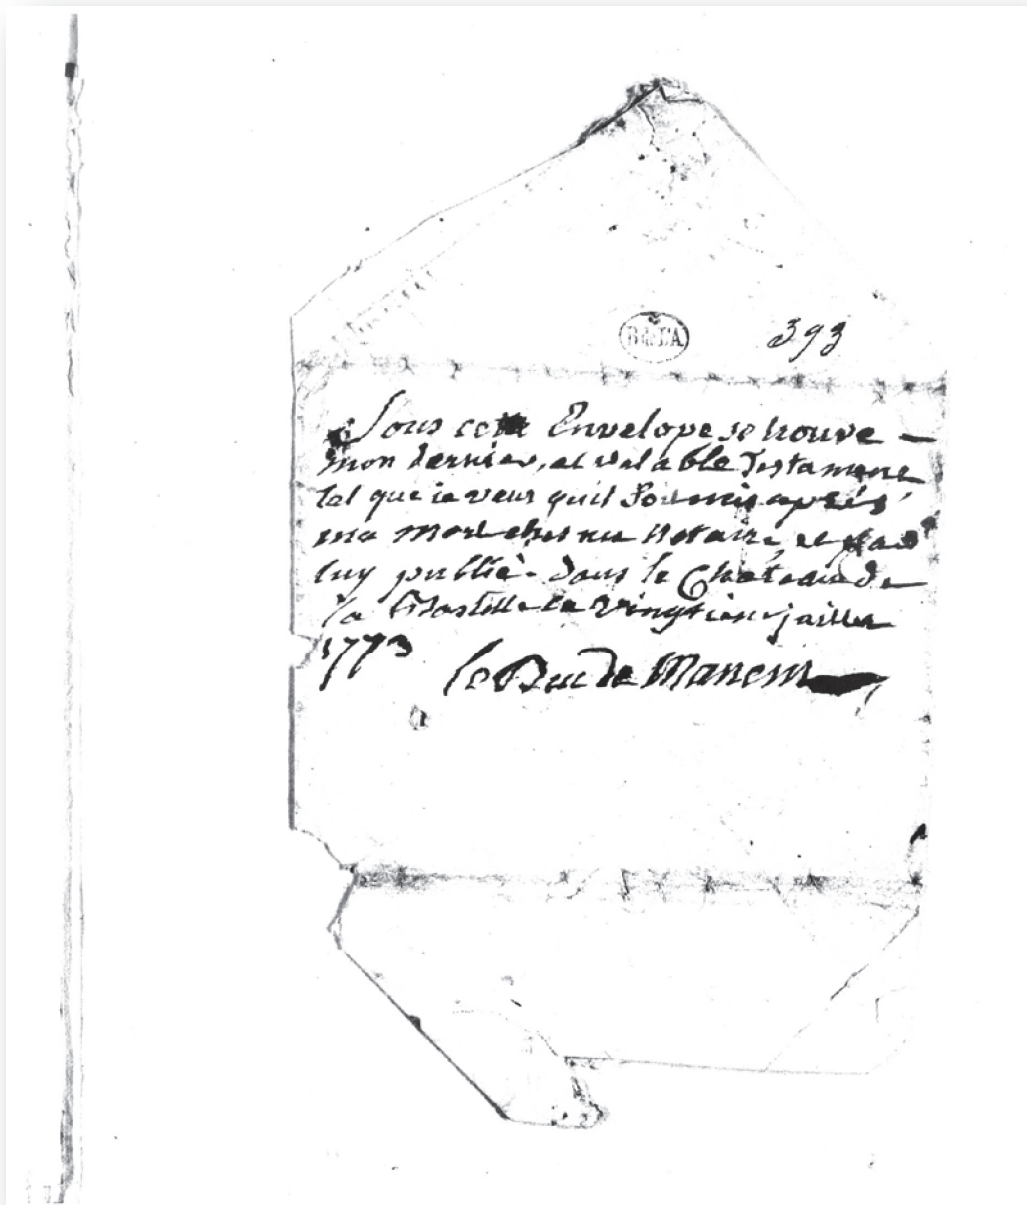 B de L'A
393
Sous cette Envelope se trouve –
mon dernier, et valable Testament
tel que ie veux quil soit mis aprés
ma mort ches un Notaire et par
luy publié. dans le Château de
la Bastille le vingtieme juillet
1773
le Duc de